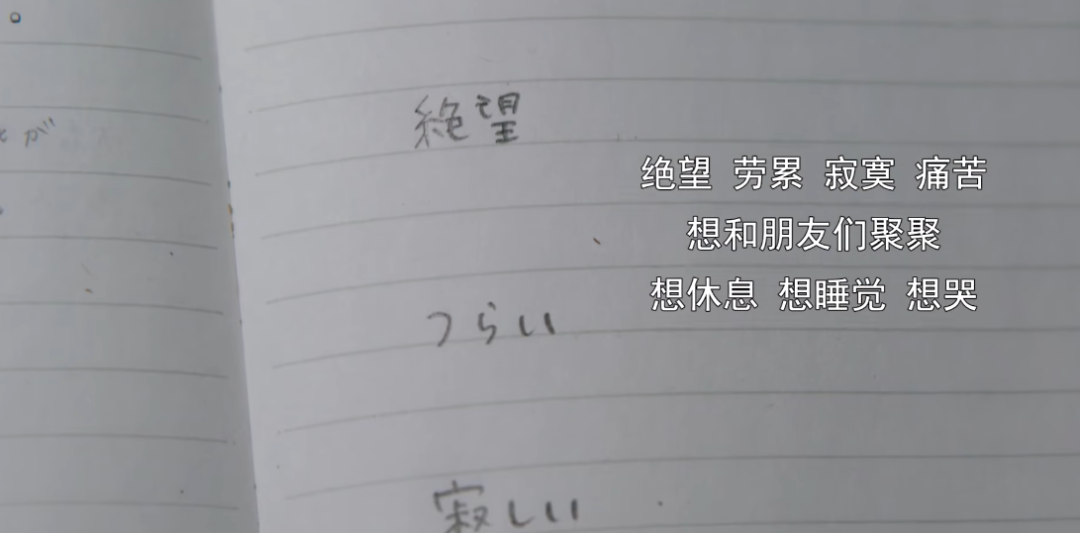 。
が
絶望
绝望 劳累 寂寞 痛苦
想和朋友们聚聚
想休息 想睡觉 想哭
つらい
寂しい